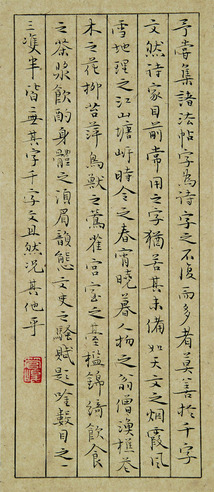 予嘗集諸法帖字為詩字之不復而多者莫善於千字
文然詩家目前常用之字猶苦其未備如天文之烟霞風
雪地理之江山塘岸時令之春宵曉暮人物之翁僧漁樵卉
木之花柳苔萍鳥獸之鶯雀宮室之臺檻錦綺飲食
之茶漿飲酌身體之須眉韻態文史之騷賦題吟數目之一
三雙半皆無其字千字文且然況其他乎